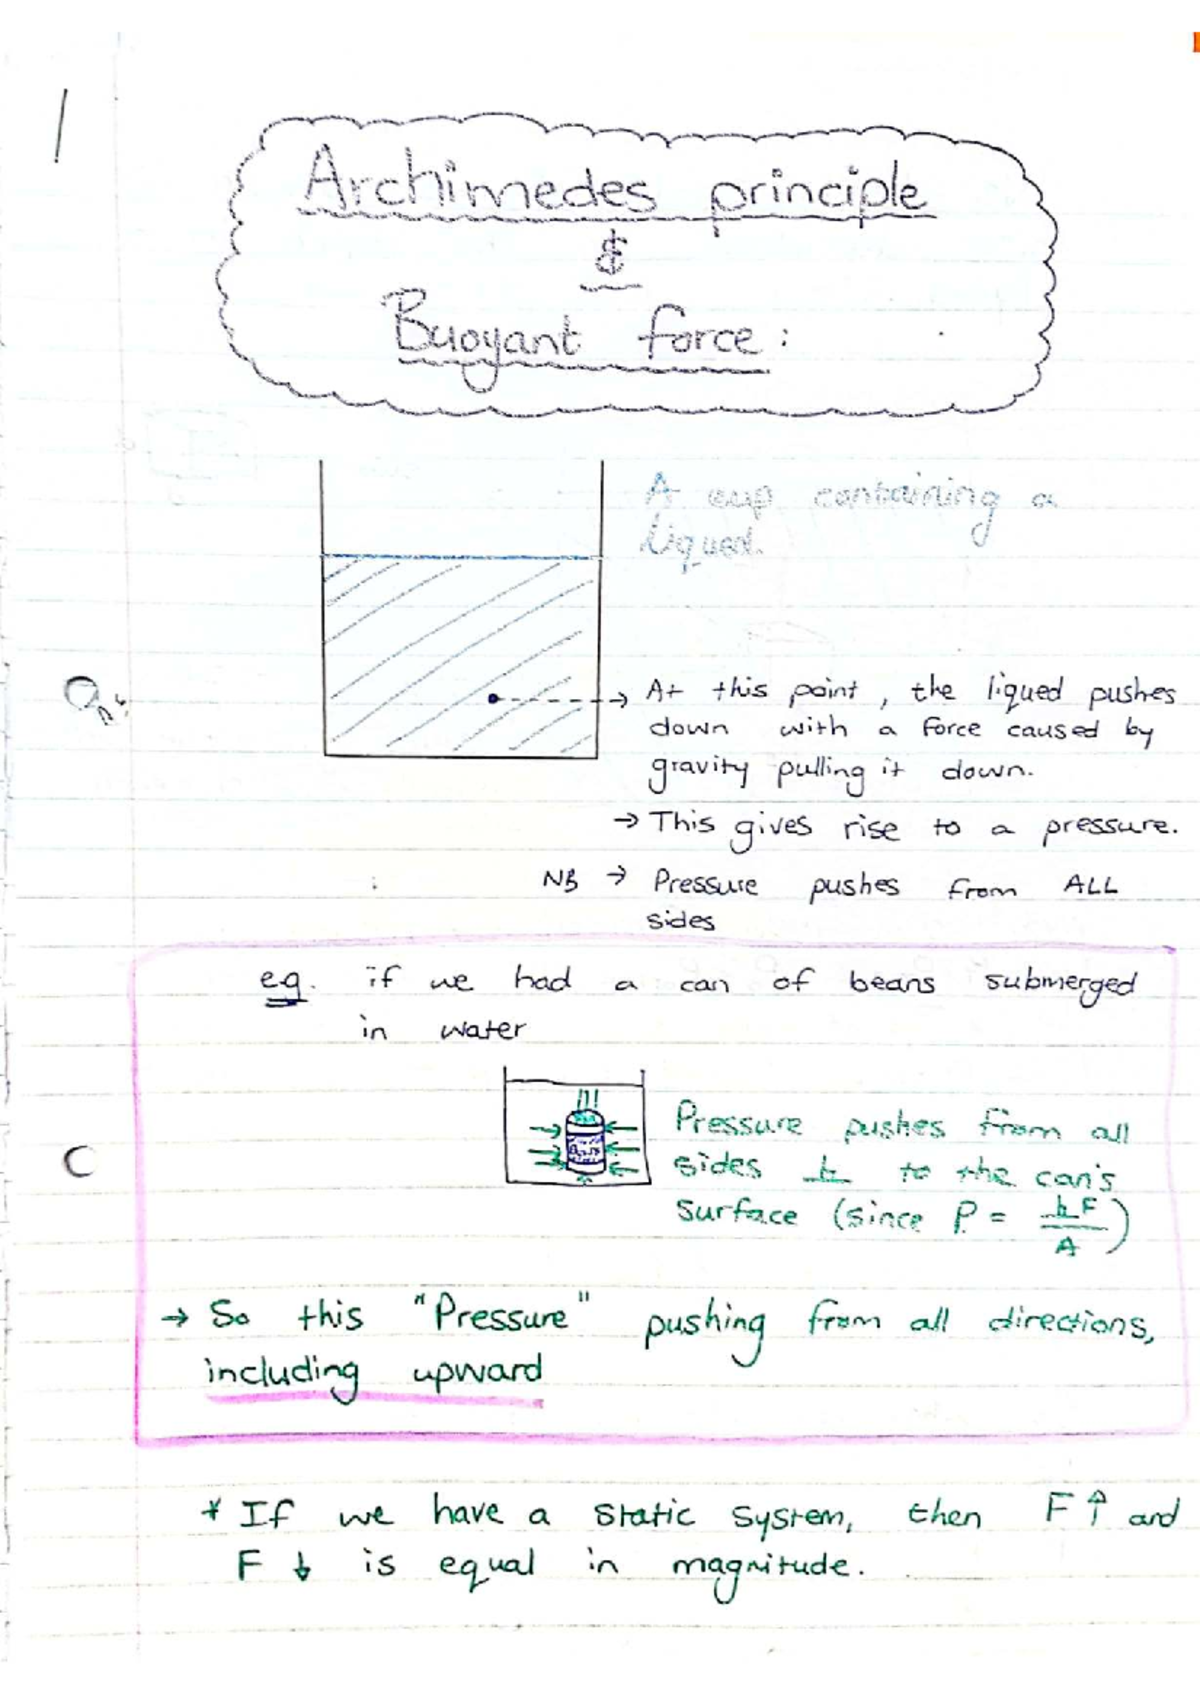 1
Archimedes principle
&
Buoyant force:
A cup containing a
liqued.
At this point, the liqued pushes
down with a force caused by
gravity pulling it down.
→ This gives rise to a pressure.
NB → Pressure pushes from ALL
sides
e.g. if we had a can of beans submerged
in water
Pressure pushes from all
sides ⊥ to the can's
surface (since P = ⊥F/A)
→ So this "Pressure" pushing from all directions,
including upward
* If we have a static system, then F↑ and
F↓ is equal in magnitude.